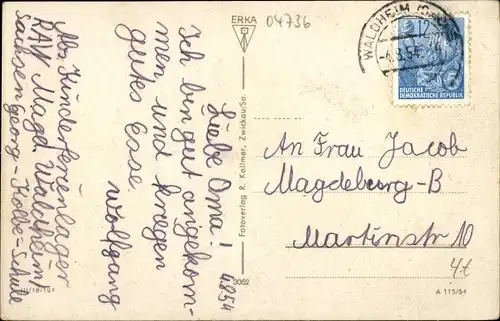 ERKA
04736
Liebe Oma!
4.8.54
Ich bin gut angekom-
men und kriegen
gutes Ease.
Wolfgang
Abs. Kinderferienlager
RAW Magd. Waldheim
Sachsen Georg-Kolbe-Schule
III/18/197
Fotoverlag R. Kallmer, Zwickau/Sa.
3062
WALDHEIM
-4.8.54
12
DEUTSCHE
DEMOKRATISCHE REPUBLIK
An Frau Jacob
Magdeburg-B
Martinstr 10
A 115/54